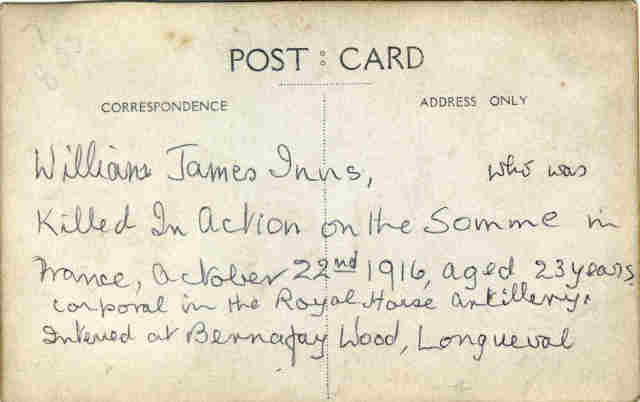 POST : CARD
CORRESPONDENCE
ADDRESS ONLY
William James Inns, who was
Killed In Action on the Somme in
France, October 22nd 1916, aged 23 years,
corporal in the Royal Horse Artillery.
Interred at Bernafay Wood, Longueval